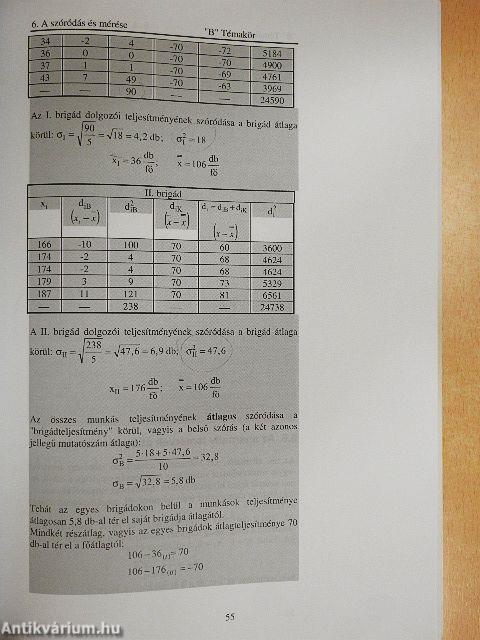 6. A szóródás és mérése "B" Témakör
34 -2 4 -70 -72 5184
36 0 0 -70 -70 4900
37 1 1 -70 -69 4761
43 7 49 -70 -63 3969
— — 90 — — 24590
Az I. brigád dolgozói teljesítményének szóródása a brigád átlaga
körül: σI = √(90/5) = √18 = 4,2 db; σ²I = 18
x̄I = 36 db/fő; x̿ = 106 db/fő
II. brigád
xi diB (xi – x̄) d²iB diK (x̄ – x̿) di = diB + diK (x – x̿) d²i
166 -10 100 70 60 3600
174 -2 4 70 68 4624
174 -2 4 70 68 4624
179 3 9 70 73 5329
187 11 121 70 81 6561
— — 238 — — 24738
A II. brigád dolgozói teljesítményének szóródása a brigád átlaga
körül: σII = √(238/5) = √47,6 = 6,9 db; σ²II = 47,6
xII = 176 db/fő; x̿ = 106 db/fő
Az összes munkás teljesítményének átlagos szóródása a
"brigádteljesítmény" körül, vagyis a belső szórás (a két azonos
jellegű mutatószám átlaga):
σ²B = (5·18+5·47,6)/10 = 32,8
σB = √32,8 = 5,8 db
Tehát az egyes brigádokon belül a munkások teljesítménye
átlagosan 5,8 db-al tér el saját brigádja átlagától.
Mindkét részátlag, vagyis az egyes brigádok átlagteljesítménye 70
db-al tér el a főátlagtól:
106 – 36(I) = 70
106 – 176(II) = –70
55
Antikvárium.hu